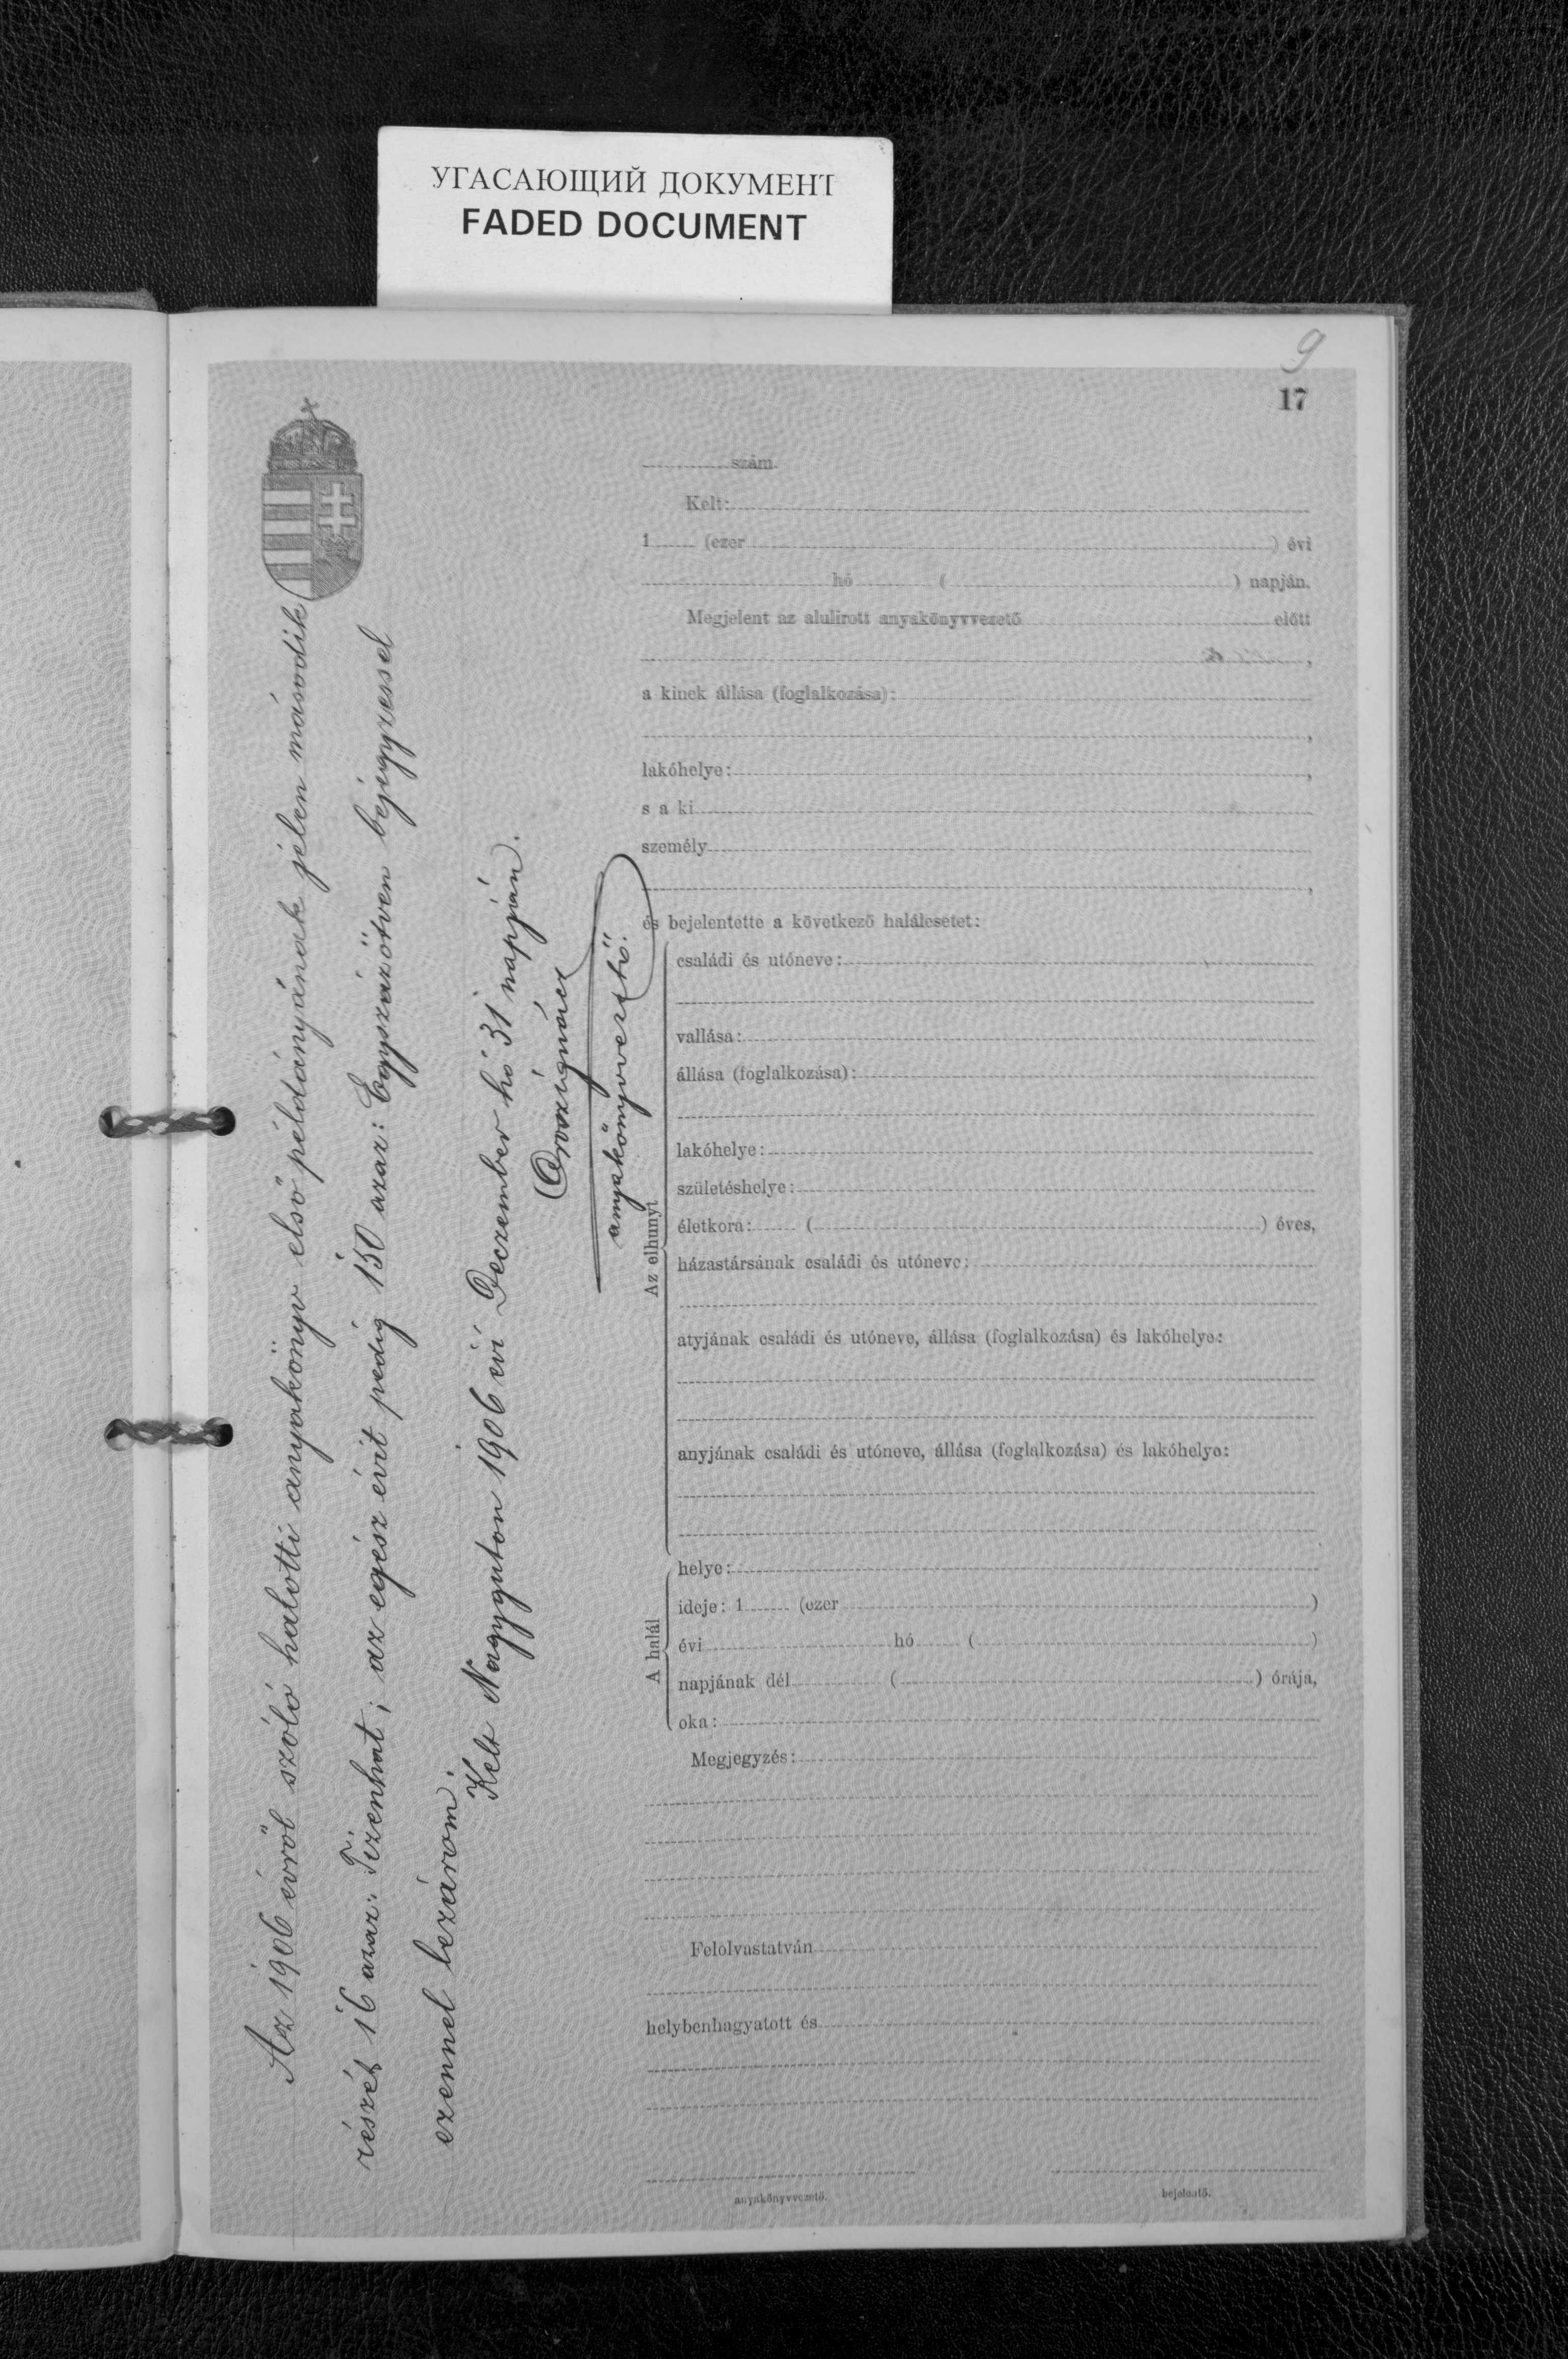 УГАСАЮЩИЙ ДОКУМЕНТ
FADED DOCUMENT
9
17
szám.
Kelt:
1 (ezer ) évi
hó ( ) napján.
Megjelent az alulirott anyakönyvvezető előtt
,
a kinek állása (foglalkozása):
,
lakóhelye: ,
s a ki
személy
,
és bejelentette a következő halálesetet:
Az elhunyt
családi és utóneve:
vallása:
állása (foglalkozása):
lakóhelye:
születéshelye:
életkora: ( ) éves,
házastársának családi és utóneve:
atyjának családi és utóneve, állása (foglalkozása) és lakóhelye:
anyjának családi és utóneve, állása (foglalkozása) és lakóhelye:
A halál
helye:
ideje: 1 (ezer )
évi hó ( )
napjának dél ( ) órája,
oka:
Megjegyzés:
Felolvastatván
helybenhagyatott és
anyakönyvvezető.
bejelentő.
Az 1906 évről szóló halotti anyakönyv első példányának jelen második
részét 16 azaz: Tizenhat; az egész évit pedig 150 azaz: Egyszázötven bejegyzéssel
ezennel lezárom.
Kelt Nagyguton 1906 évi Deczember hó 31 napján.
anyakönyvvezető.